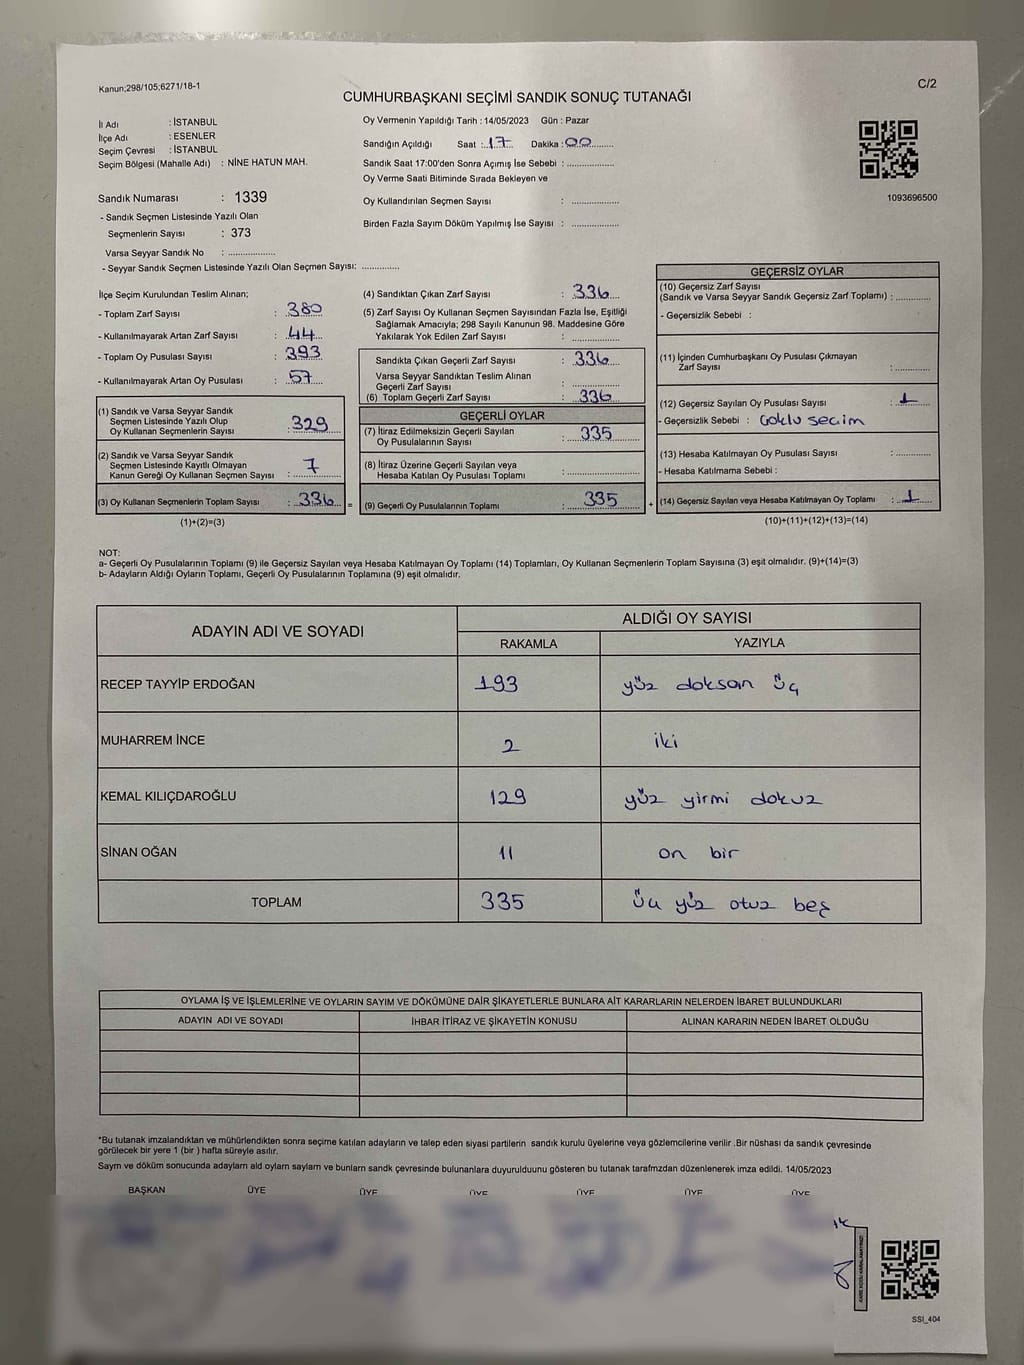 Kanun;298/105;6271/18-1
C/2
CUMHURBAŞKANI SEÇİMİ SANDIK SONUÇ TUTANAĞI
İl Adı : İSTANBUL
İlçe Adı : ESENLER
Seçim Çevresi : İSTANBUL
Seçim Bölgesi (Mahalle Adı) : NİNE HATUN MAH.
Oy Vermenin Yapıldığı Tarih : 14/05/2023 Gün : Pazar
Sandığın Açıldığı Saat : 17 Dakika : 00
Sandık Saat 17:00'den Sonra Açımış İse Sebebi :
Oy Verme Saati Bitiminde Sırada Bekleyen ve
Oy Kullandırılan Seçmen Sayısı :
Birden Fazla Sayım Döküm Yapılmış İse Sayısı :
1093696500
Sandık Numarası : 1339
- Sandık Seçmen Listesinde Yazılı Olan
Seçmenlerin Sayısı : 373
Varsa Seyyar Sandık No :
- Seyyar Sandık Seçmen Listesinde Yazılı Olan Seçmen Sayısı:
İlçe Seçim Kurulundan Teslim Alınan;
- Toplam Zarf Sayısı : 380
- Kullanılmayarak Artan Zarf Sayısı : 44
- Toplam Oy Pusulası Sayısı : 393
- Kullanılmayarak Artan Oy Pusulası : 57
(1) Sandık ve Varsa Seyyar Sandık
Seçmen Listesinde Yazılı Olup
Oy Kullanan Seçmenlerin Sayısı : 329
(2) Sandık ve Varsa Seyyar Sandık
Seçmen Listesinde Kayıtlı Olmayan
Kanun Gereği Oy Kullanan Seçmen Sayısı : 7
(3) Oy Kullanan Seçmenlerin Toplam Sayısı : 336 =
(1)+(2)=(3)
(4) Sandıktan Çıkan Zarf Sayısı : 336
(5) Zarf Sayısı Oy Kullanan Seçmen Sayısından Fazla İse, Eşitliği
Sağlamak Amacıyla; 298 Sayılı Kanunun 98. Maddesine Göre
Yakılarak Yok Edilen Zarf Sayısı :
Sandıkta Çıkan Geçerli Zarf Sayısı : 336
Varsa Seyyar Sandıktan Teslim Alınan
Geçerli Zarf Sayısı :
(6) Toplam Geçerli Zarf Sayısı : 336
GEÇERLİ OYLAR
(7) İtiraz Edilmeksizin Geçerli Sayılan
Oy Pusulalarının Sayısı : 335
(8) İtiraz Üzerine Geçerli Sayılan veya
Hesaba Katılan Oy Pusulası Toplamı :
(9) Geçerli Oy Pusulalarının Toplamı : 335 +
GEÇERSİZ OYLAR
(10) Geçersiz Zarf Sayısı
(Sandık ve Varsa Seyyar Sandık Geçersiz Zarf Toplamı) :
- Geçersizlik Sebebi :
(11) İçinden Cumhurbaşkanı Oy Pusulası Çıkmayan
Zarf Sayısı :
(12) Geçersiz Sayılan Oy Pusulası Sayısı : 1
- Geçersizlik Sebebi : Çoklu seçim
(13) Hesaba Katılmayan Oy Pusulası Sayısı :
- Hesaba Katılmama Sebebi :
(14) Geçersiz Sayılan veya Hesaba Katılmayan Oy Toplamı : 1
(10)+(11)+(12)+(13)=(14)
NOT:
a- Geçerli Oy Pusulalarının Toplamı (9) ile Geçersiz Sayılan veya Hesaba Katılmayan Oy Toplamı (14) Toplamları, Oy Kullanan Seçmenlerin Toplam Sayısına (3) eşit olmalıdır. (9)+(14)=(3)
b- Adayların Aldığı Oyların Toplamı, Geçerli Oy Pusulalarının Toplamına (9) eşit olmalıdır.
ADAYIN ADI VE SOYADI
ALDIĞI OY SAYISI
RAKAMLA YAZIYLA
RECEP TAYYİP ERDOĞAN 193 yüz doksan üç
MUHARREM İNCE 2 iki
KEMAL KILIÇDAROĞLU 129 yüz yirmi dokuz
SİNAN OĞAN 11 on bir
TOPLAM 335 üç yüz otuz beş
OYLAMA İŞ VE İŞLEMLERİNE VE OYLARIN SAYIM VE DÖKÜMÜNE DAİR ŞİKAYETLERLE BUNLARA AİT KARARLARIN NELERDEN İBARET BULUNDUKLARI
ADAYIN ADI VE SOYADI İHBAR İTİRAZ VE ŞİKAYETİN KONUSU ALINAN KARARIN NEDEN İBARET OLDUĞU
*Bu tutanak imzalandıktan ve mühürlendikten sonra seçime katılan adayların ve talep eden siyasi partilerin sandık kurulu üyelerine veya gözlemcilerine verilir .Bir nüshası da sandık çevresinde
görülecek bir yere 1 (bir ) hafta süreyle asılır.
Sayım ve döküm sonucunda adayların aldı oyların sayıların ve bunların sandk çevresinde bulunanlara duyurulduunu gösteren bu tutanak tarafmzdan düzenlenerek imza edildi. 14/05/2023
BAŞKAN ÜYE ÜYE ÜYE ÜYE ÜYE ÜYE
SSI_404